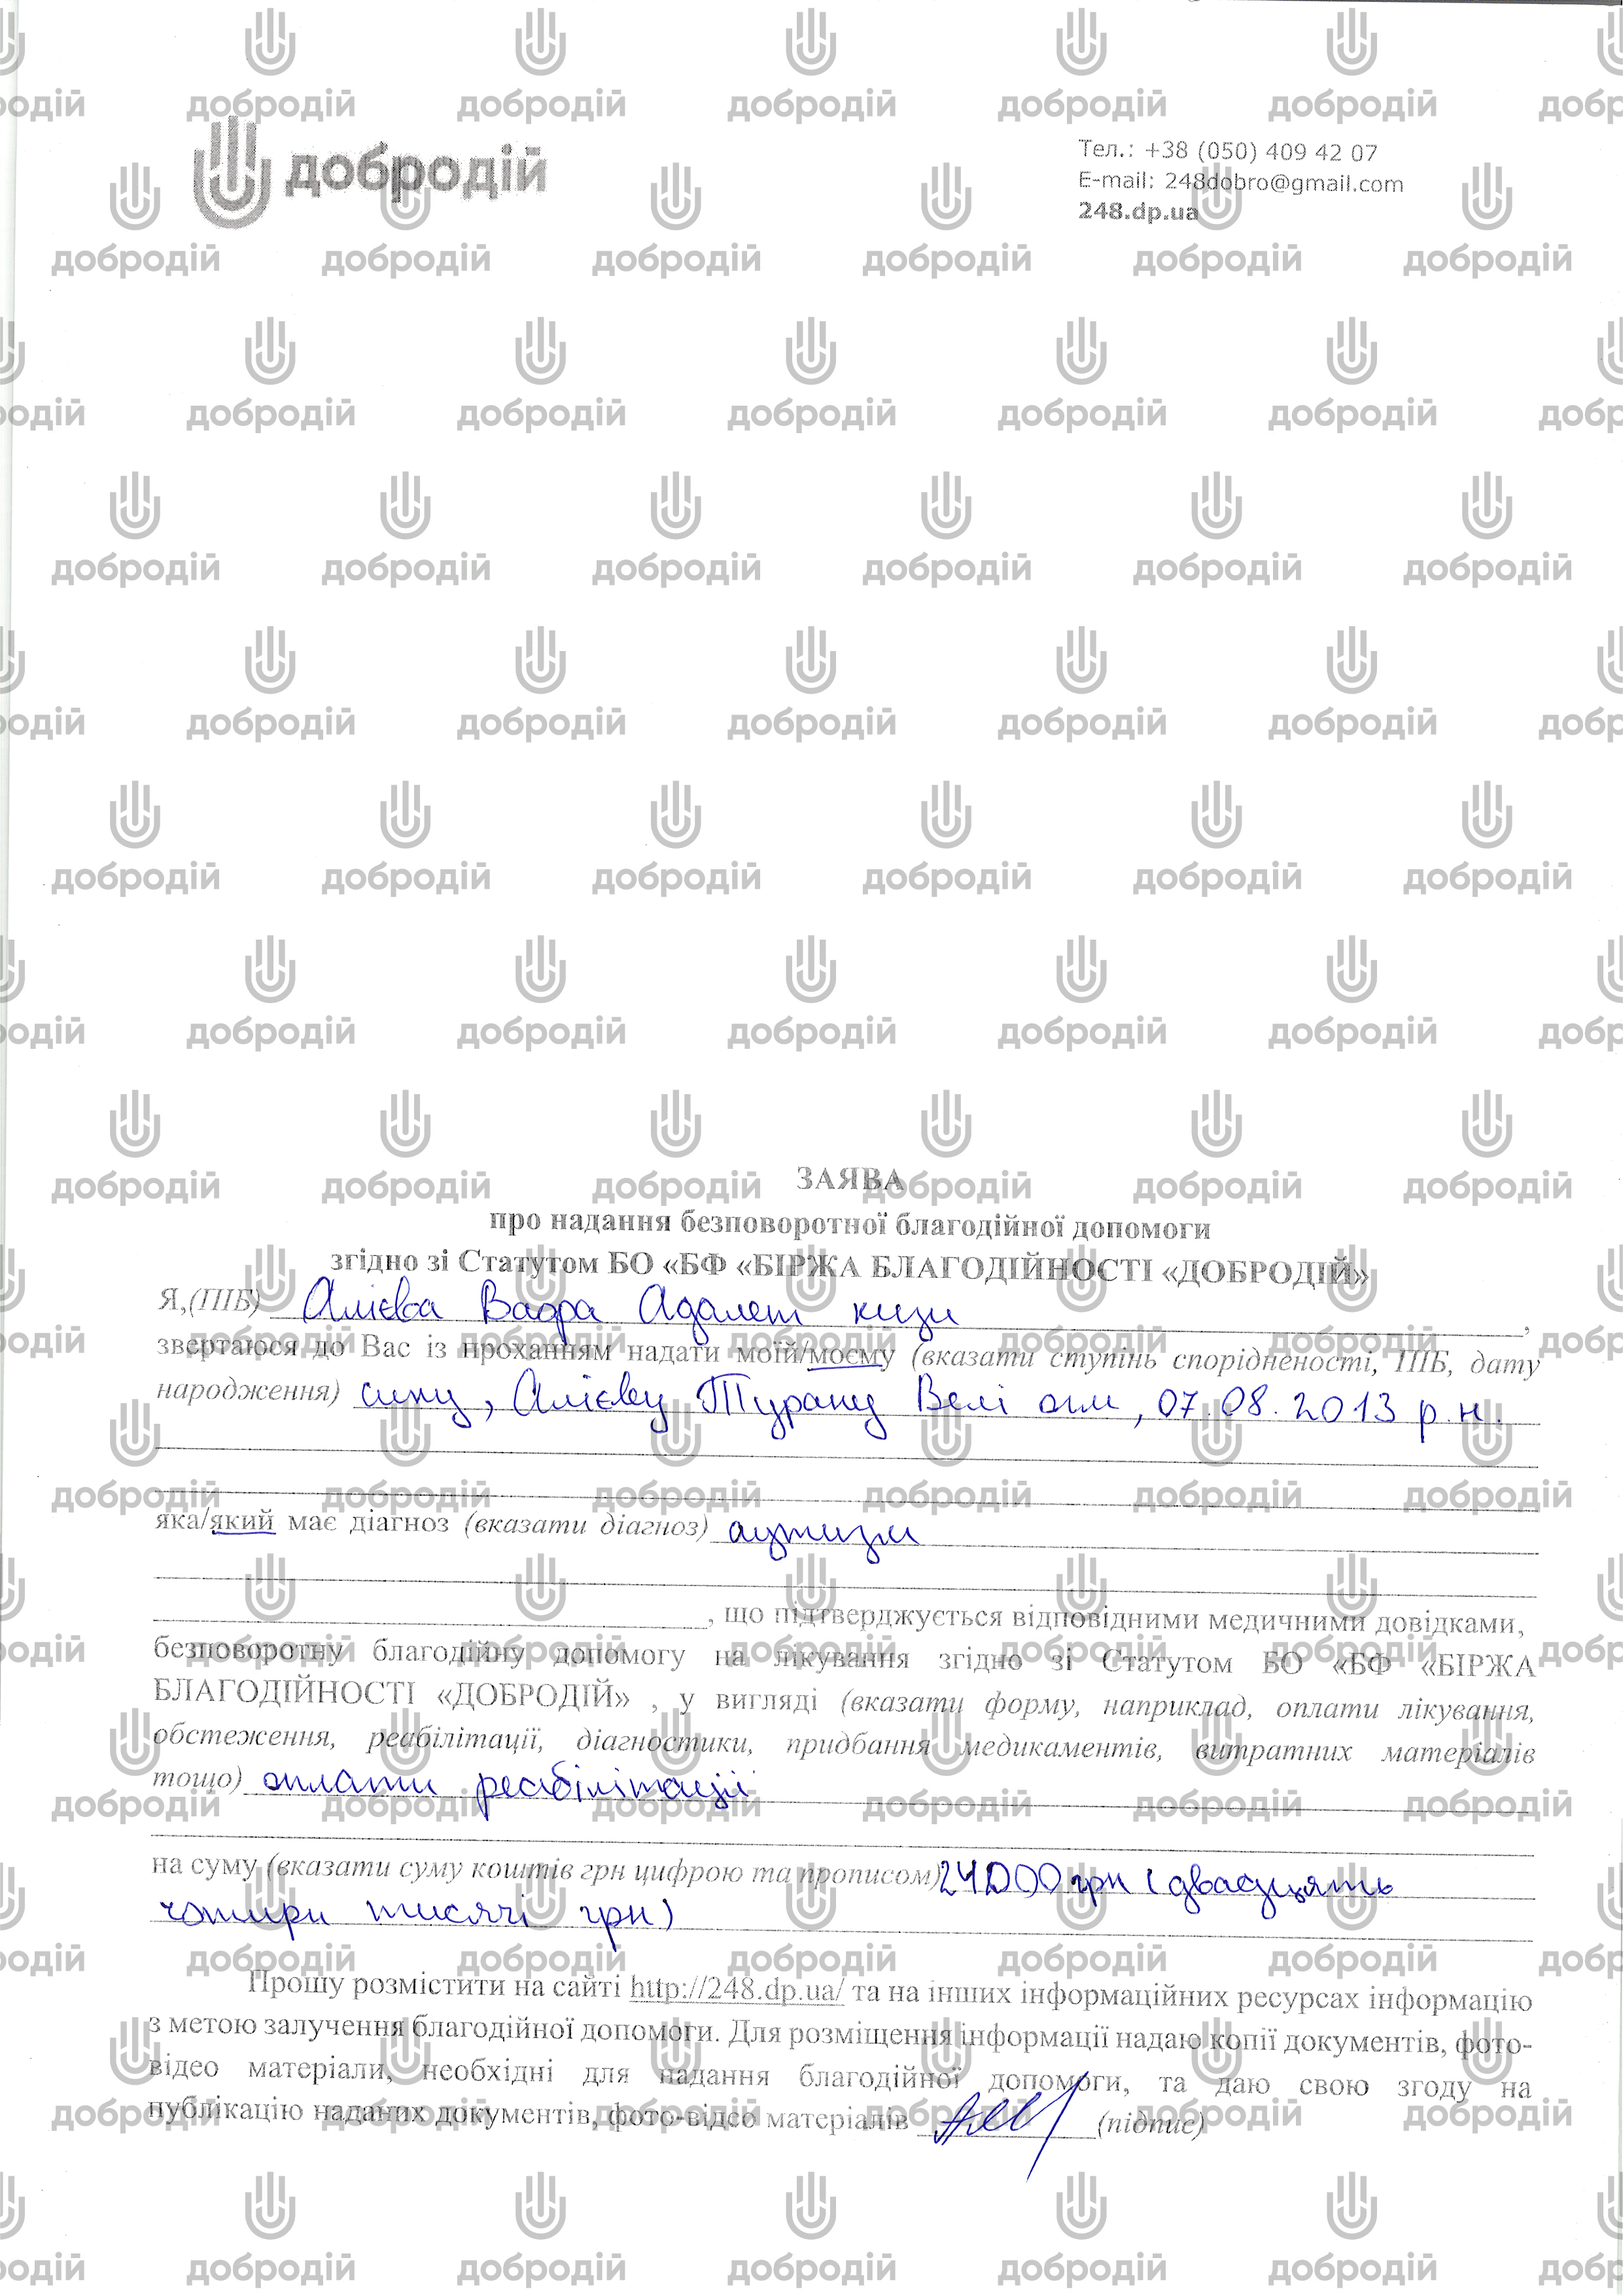 добродій
Тел.: +38 (050) 409 42 07
E-mail: 248dobro@gmail.com
248.dp.ua
ЗАЯВА
про надання безповоротної благодійної допомоги
згідно зі Статутом БО «БФ «БІРЖА БЛАГОДІЙНОСТІ «ДОБРОДІЙ»
Я,(ПІБ) Алієва Вафа Адалет кизи,
звертаюся до Вас із проханням надати моїй/моєму (вказати ступінь спорідненості, ПІБ, дату
народження) сину, Алієву Турану Велі огли, 07.08.2013 р.н.
яка/який має діагноз (вказати діагноз) аутизм
, що підтверджується відповідними медичними довідками,
безповоротну благодійну допомогу на лікування згідно зі Статутом БО «БФ «БІРЖА
БЛАГОДІЙНОСТІ «ДОБРОДІЙ» , у вигляді (вказати форму, наприклад, оплати лікування,
обстеження, реабілітації, діагностики, придбання медикаментів, витратних матеріалів
тощо) оплати реабілітації
на суму (вказати суму коштів грн цифрою та прописом) 24000 грн (двадцять
чотири тисячі грн)
Прошу розмістити на сайті http://248.dp.ua/ та на інших інформаційних ресурсах інформацію
з метою залучення благодійної допомоги. Для розміщення інформації надаю копії документів, фото-
відео матеріали, необхідні для надання благодійної допомоги, та даю свою згоду на
публікацію наданих документів, фото-відео матеріалів (підпис)